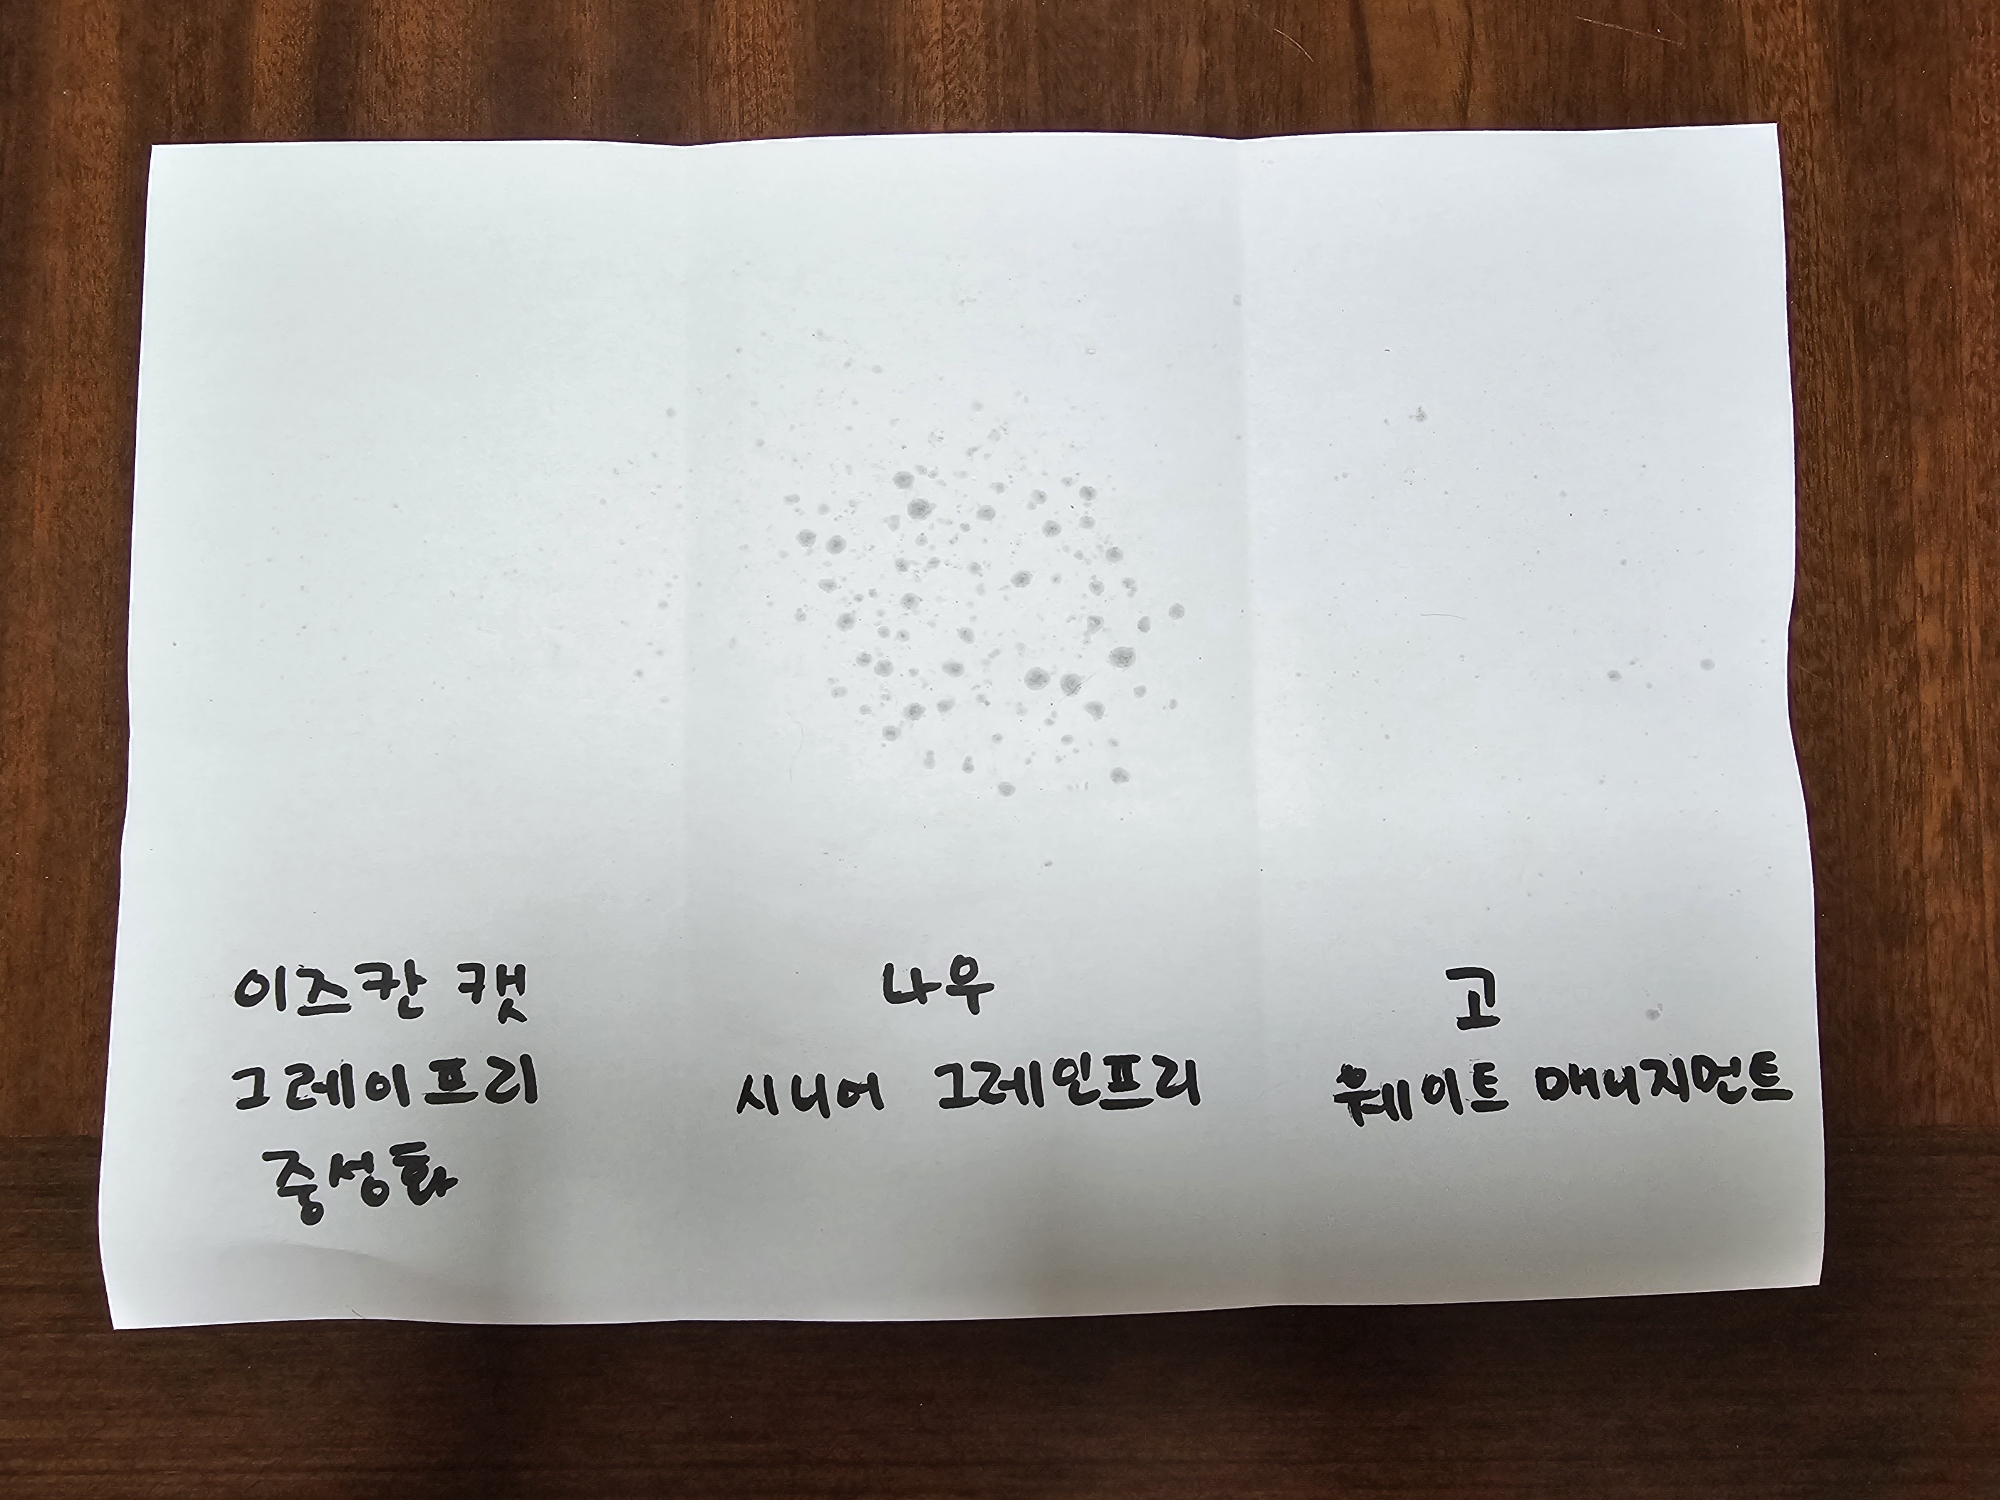 이즈칸 캣
그레이프리
중성화
나우
시니어 그레인프리
고
웨이트 매니지먼트